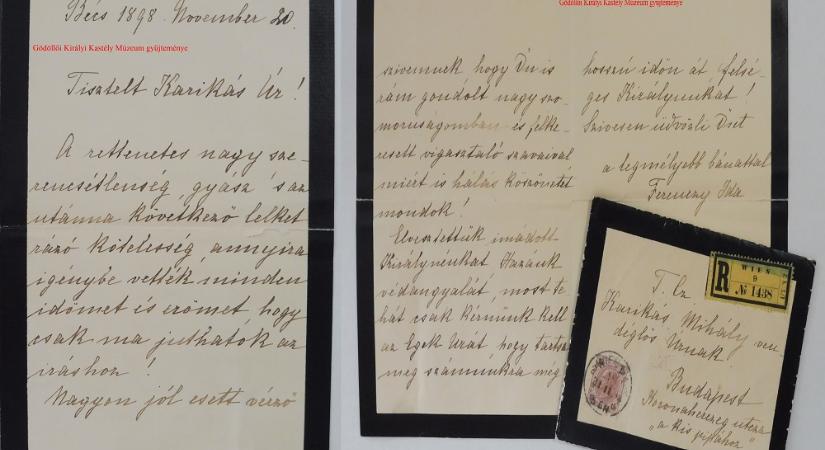 Bécs 1898. November 20.
Gödöllői Királyi Kastély Múzeum gyűjteménye
Tisztelt Karikás Úr!
A rettenetes nagy sze-
rencsétlenség, gyász 's az
utánna következő lelket
rázó kötelesség, annyira
igénybe vették minden
időmet és erőmet, hogy
csak ma juthatók az
íráshoz!
Nagyon jól esett vérző
Gödöllői Királyi Kastély Múzeum gyűjteménye
szivemnek, hogy Ön is
rám gondolt nagy szo-
moruságomban és felke-
resett vigasztaló szavaival,
miért is hálás köszönetet
mondok!
Elvesztettük imádott
Királynénkat Hazánk
védangyalát, most te-
hát csak kérnünk kell
az Egek Urát, hogy tartsa
meg számunkra még
hosszú időn át felsé-
ges Királyunkat!
Szivesen üdvözli Önt
a legmélyebb bánattal
Ferenczy Ida
R
WIEN
9
№ 1438
T. Cz.
Karikás Mihály ven-
déglős Úrnak
Budapest
Koronaherczeg utcza
„a kis pipához"
WIEN